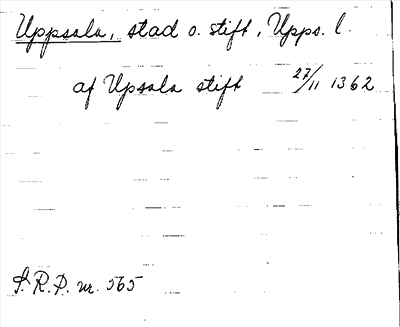 Uppsala, stad o. stift, Upps. l.
af Upsala stift 27/11 1362
S.R.P. nr. 565